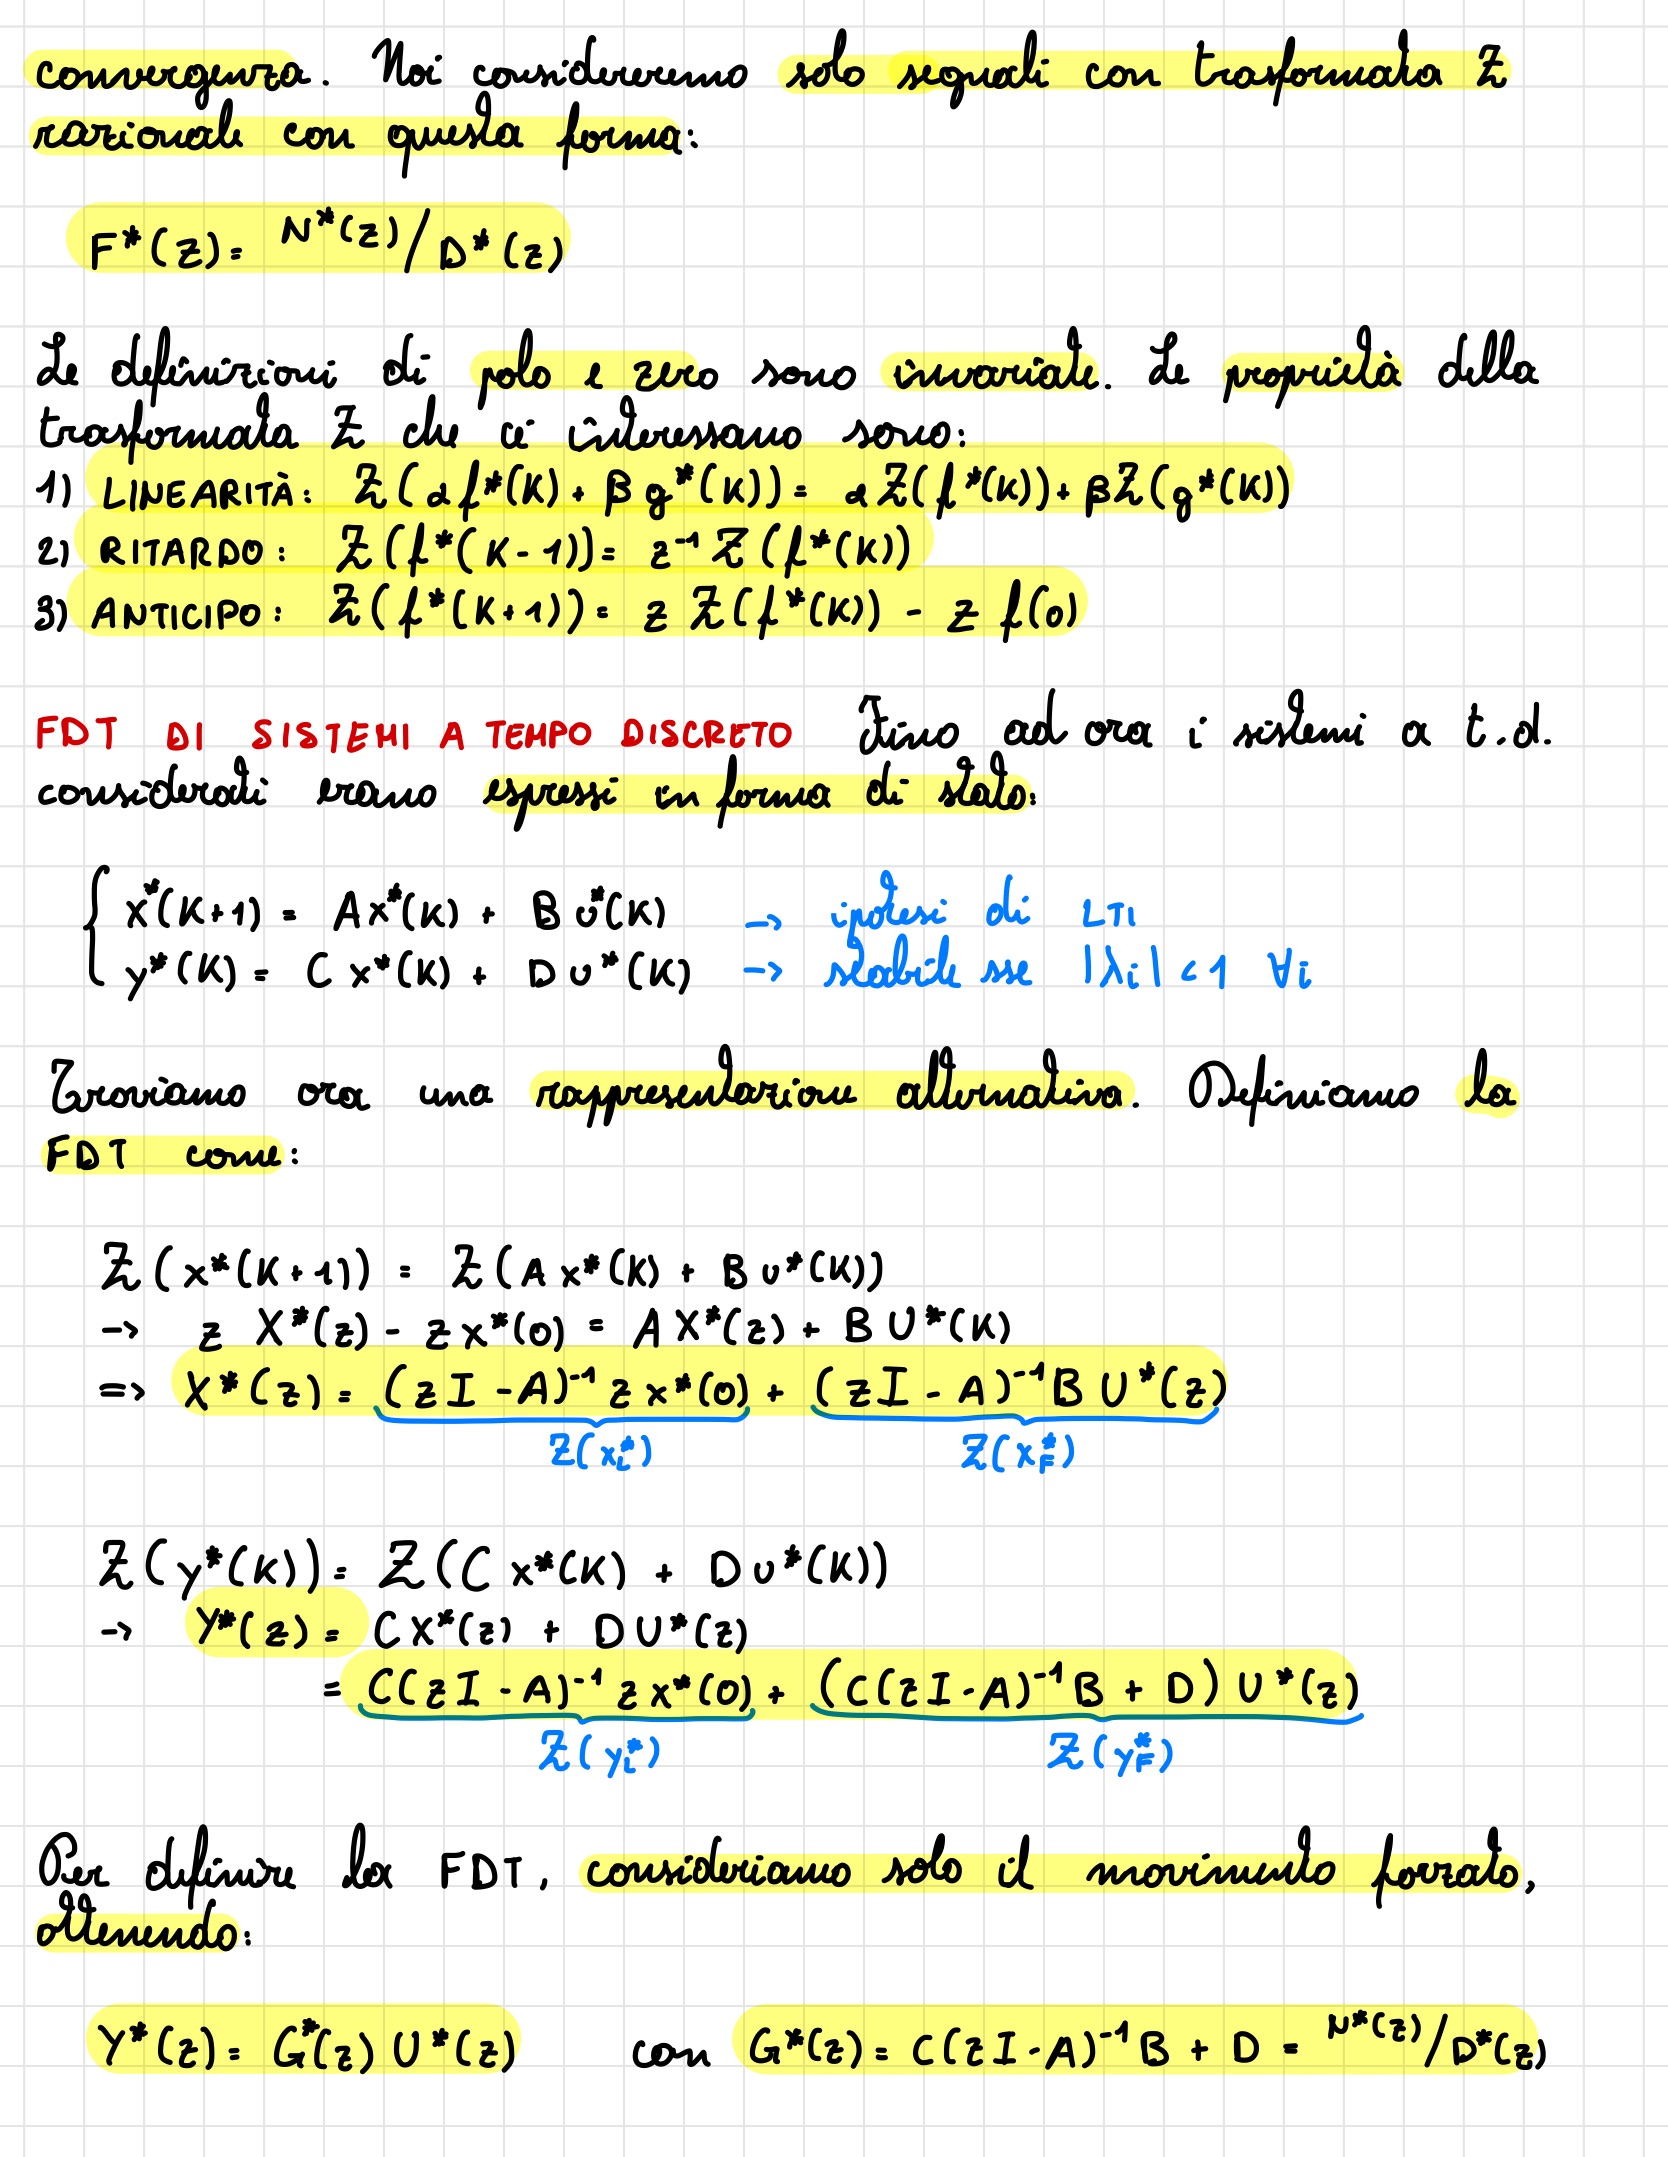 convergenza. Noi considereremo solo segnali con trasformata Z
razionale con questa forma:
F*(z) = N*(z)/D*(z)
Le definizioni di polo e zero sono invariate. Le proprietà della
trasformata Z che ci interessano sono:
1) LINEARITÀ: Z(αf*(K) + βg*(K)) = αZ(f*(K)) + βZ(g*(K))
2) RITARDO: Z(f*(K-1)) = z⁻¹ Z(f*(K))
3) ANTICIPO: Z(f*(K+1)) = z Z(f*(K)) - z f(0)
FDT DI SISTEMI A TEMPO DISCRETO Fino ad ora i sistemi a t.d.
considerati erano espressi in forma di stato:
x*(K+1) = Ax*(K) + Bu*(K) -> ipotesi di LTI
y*(K) = Cx*(K) + Du*(K) -> stabile sse |λi| < 1 ∀i
Troviamo ora una rappresentazione alternativa. Definiamo la
FDT come:
Z(x*(K+1)) = Z(Ax*(K) + Bu*(K))
-> z X*(z) - zx*(0) = AX*(z) + BU*(K)
=> X*(z) = (zI-A)⁻¹ z x*(0) + (zI-A)⁻¹ B U*(z)
Z(x*L) Z(x*F)
Z(y*(K)) = Z(Cx*(K) + Du*(K))
-> Y*(z) = CX*(z) + DU*(z)
= C(zI-A)⁻¹ z x*(0) + (C(zI-A)⁻¹ B + D) U*(z)
Z(y*L) Z(y*F)
Per definire la FDT, consideriamo solo il movimento forzato,
ottenendo:
Y*(z) = G*(z) U*(z) con G*(z) = C(zI-A)⁻¹ B + D = N*(z)/D*(z)